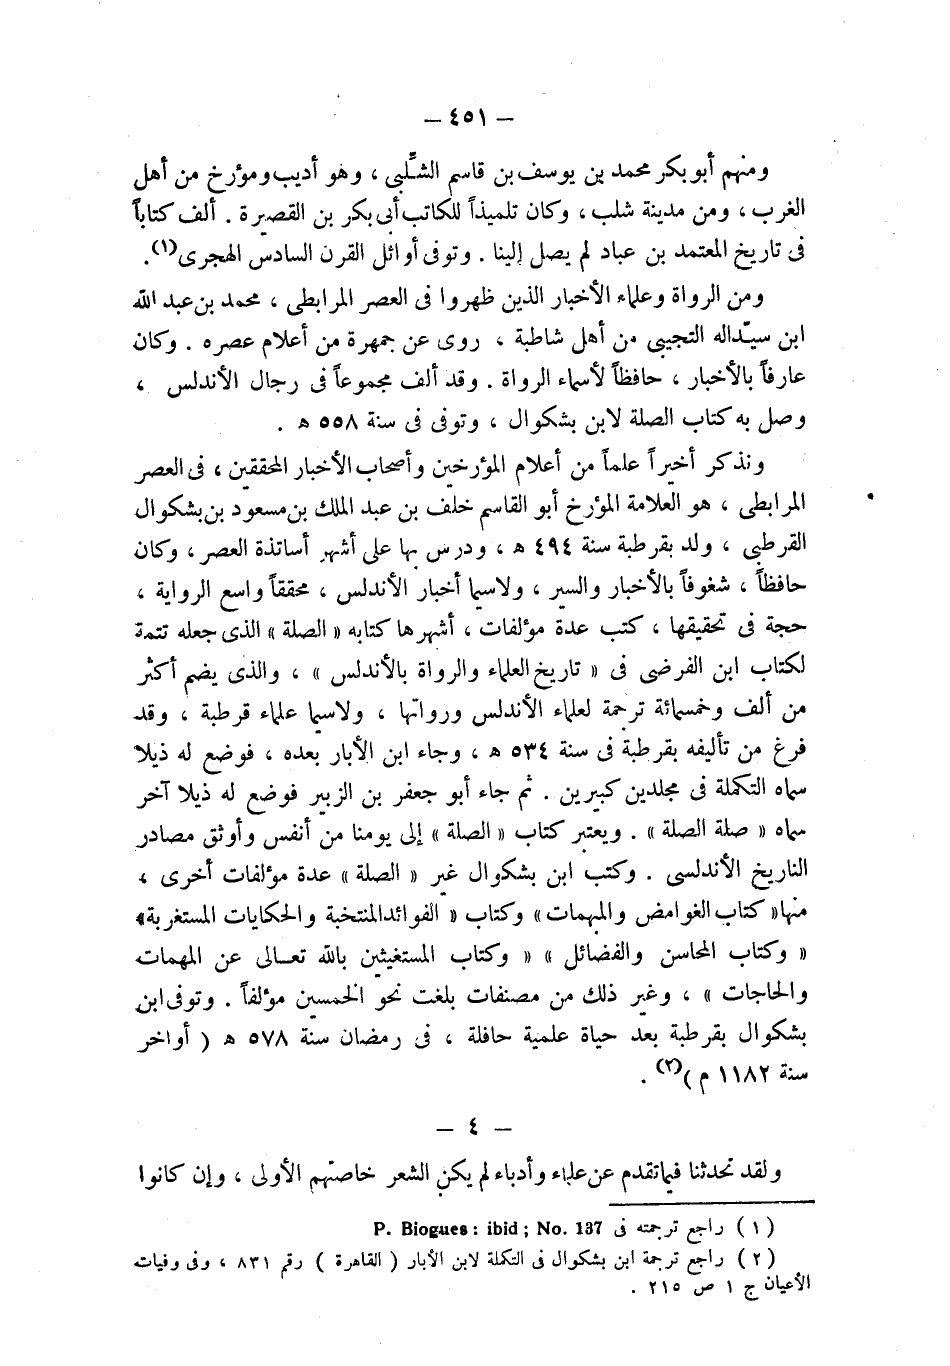 — ٤٥١ —
ومنهم أبو بكر محمد بن يوسف بن قاسم الشلَّبي ، وهو أديب ومؤرخ من أهل
الغرب ، ومن مدينة شلب ، وكان تلميذاً للكاتب أبى بكر بن القصيرة . ألف كتاباً
فى تاريخ المعتمد بن عباد لم يصل إلينا . وتوفى أوائل القرن السادس الهجرى(١).
ومن الرواة وعلماء الأخبار الذين ظهروا فى العصر المرابطى ، محمد بن عبد الله
ابن سيدّاله التجيبى من أهل شاطبة ، روى عن جمهرة من أعلام عصره . وكان
عارفاً بالأخبار ، حافظاً لأسماء الرواة . وقد ألف مجموعاً فى رجال الأندلس ،
وصل به كتاب الصلة لابن بشكوال ، وتوفى فى سنة ٥٥٨ ه .
ونذكر أخيراً علماً من أعلام المؤرخين وأصحاب الأخبار المحققين ، فى العصر
المرابطى ، هو العلامة المؤرخ أبو القاسم خلف بن عبد الملك بن مسعود بن بشكوال
القرطبى ، ولد بقرطبة سنة ٤٩٤ ه ، ودرس بها على أشهر أساتذة العصر ، وكان
حافظاً ، شغوفاً بالأخبار والسير ، ولاسيما أخبار الأندلس ، محققاً واسع الرواية ،
حجة فى تحقيقها ، كتب عدة مؤلفات ، أشهرها كتابه « الصلة » الذى جعله تتمة
لكتاب ابن الفرضى فى « تاريخ العلماء والرواة بالأندلس » ، والذى يضم أكثر
من ألف وخمسمائة ترجمة لعلماء الأندلس ورواتها ، ولاسيما علماء قرطبة ، وقد
فرغ من تأليفه بقرطبة فى سنة ٥٣٤ ه ، وجاء ابن الأبار بعده ، فوضع له ذيلا
سماه التكملة فى مجلدين كبيرين . ثم جاء أبو جعفر بن الزبير فوضع له ذيلا آخر
سماه « صلة الصلة » . ويعتبر كتاب « الصلة » إلى يومنا من أنفس وأوثق مصادر
التاريخ الأندلسى . وكتب ابن بشكوال غير « الصلة » عدة مؤلفات أخرى ،
منها « كتاب الغوامض والمبهمات » وكتاب « الفوائد المنتخبة والحكايات المستغربة »
« وكتاب المحاسن والفضائل » « وكتاب المستغيثين بالله تعالى عن المهمات
والحاجات » ، وغير ذلك من مصنفات بلغت نحو الخمسين مؤلفاً . وتوفى ابن
بشكوال بقرطبة بعد حياة علمية حافلة ، فى رمضان سنة ٥٧٨ ه ( أواخر
سنة ١١٨٢ م )(٢) .
— ٤ —
ولقد تحدثنا فيما تقدم عن علماء وأدباء لم يكن الشعر خاصتهم الأولى ، وإن كانوا
( ١ ) راجع ترجمته فى P. Biogues : ibid ; No. 137
( ٢ ) راجع ترجمة ابن بشكوال فى التكملة لابن الأبار ( القاهرة ) رقم ٨٣١ ، وفى وفيات
الأعيان ج ١ ص ٢١٥ .